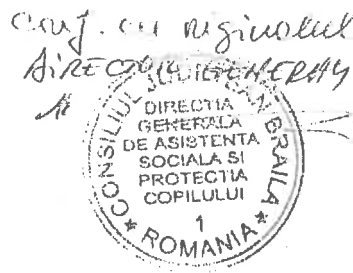 Conf. cu originalul
DIRECTOR GENERAL
CONSILIUL JUDETEAN BRAILA
DIRECTIA
GENERALA
DE ASISTENTA
SOCIALA SI
PROTECTIA
COPILULUI
1
* ROMANIA *